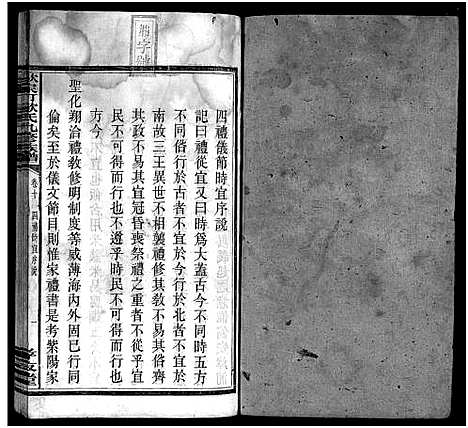 四禮儀節時宜序說
記曰禮從宜又曰時爲大蓋古今不同時五方
不同俗行於古者不宜於今行於北者不宜於
南故三王異世不相襲禮修其教不易其俗齊
其政不易其宜冠昏喪祭禮之重者不從乎宜
民不可得而行也不遵乎時民不可得而行也
方今
聖化翔洽禮教修明制度等威薄海內外固已行同
倫矣至於儀文節目則惟家禮書是考紫陽家
卷十
四禮時宜序說
一